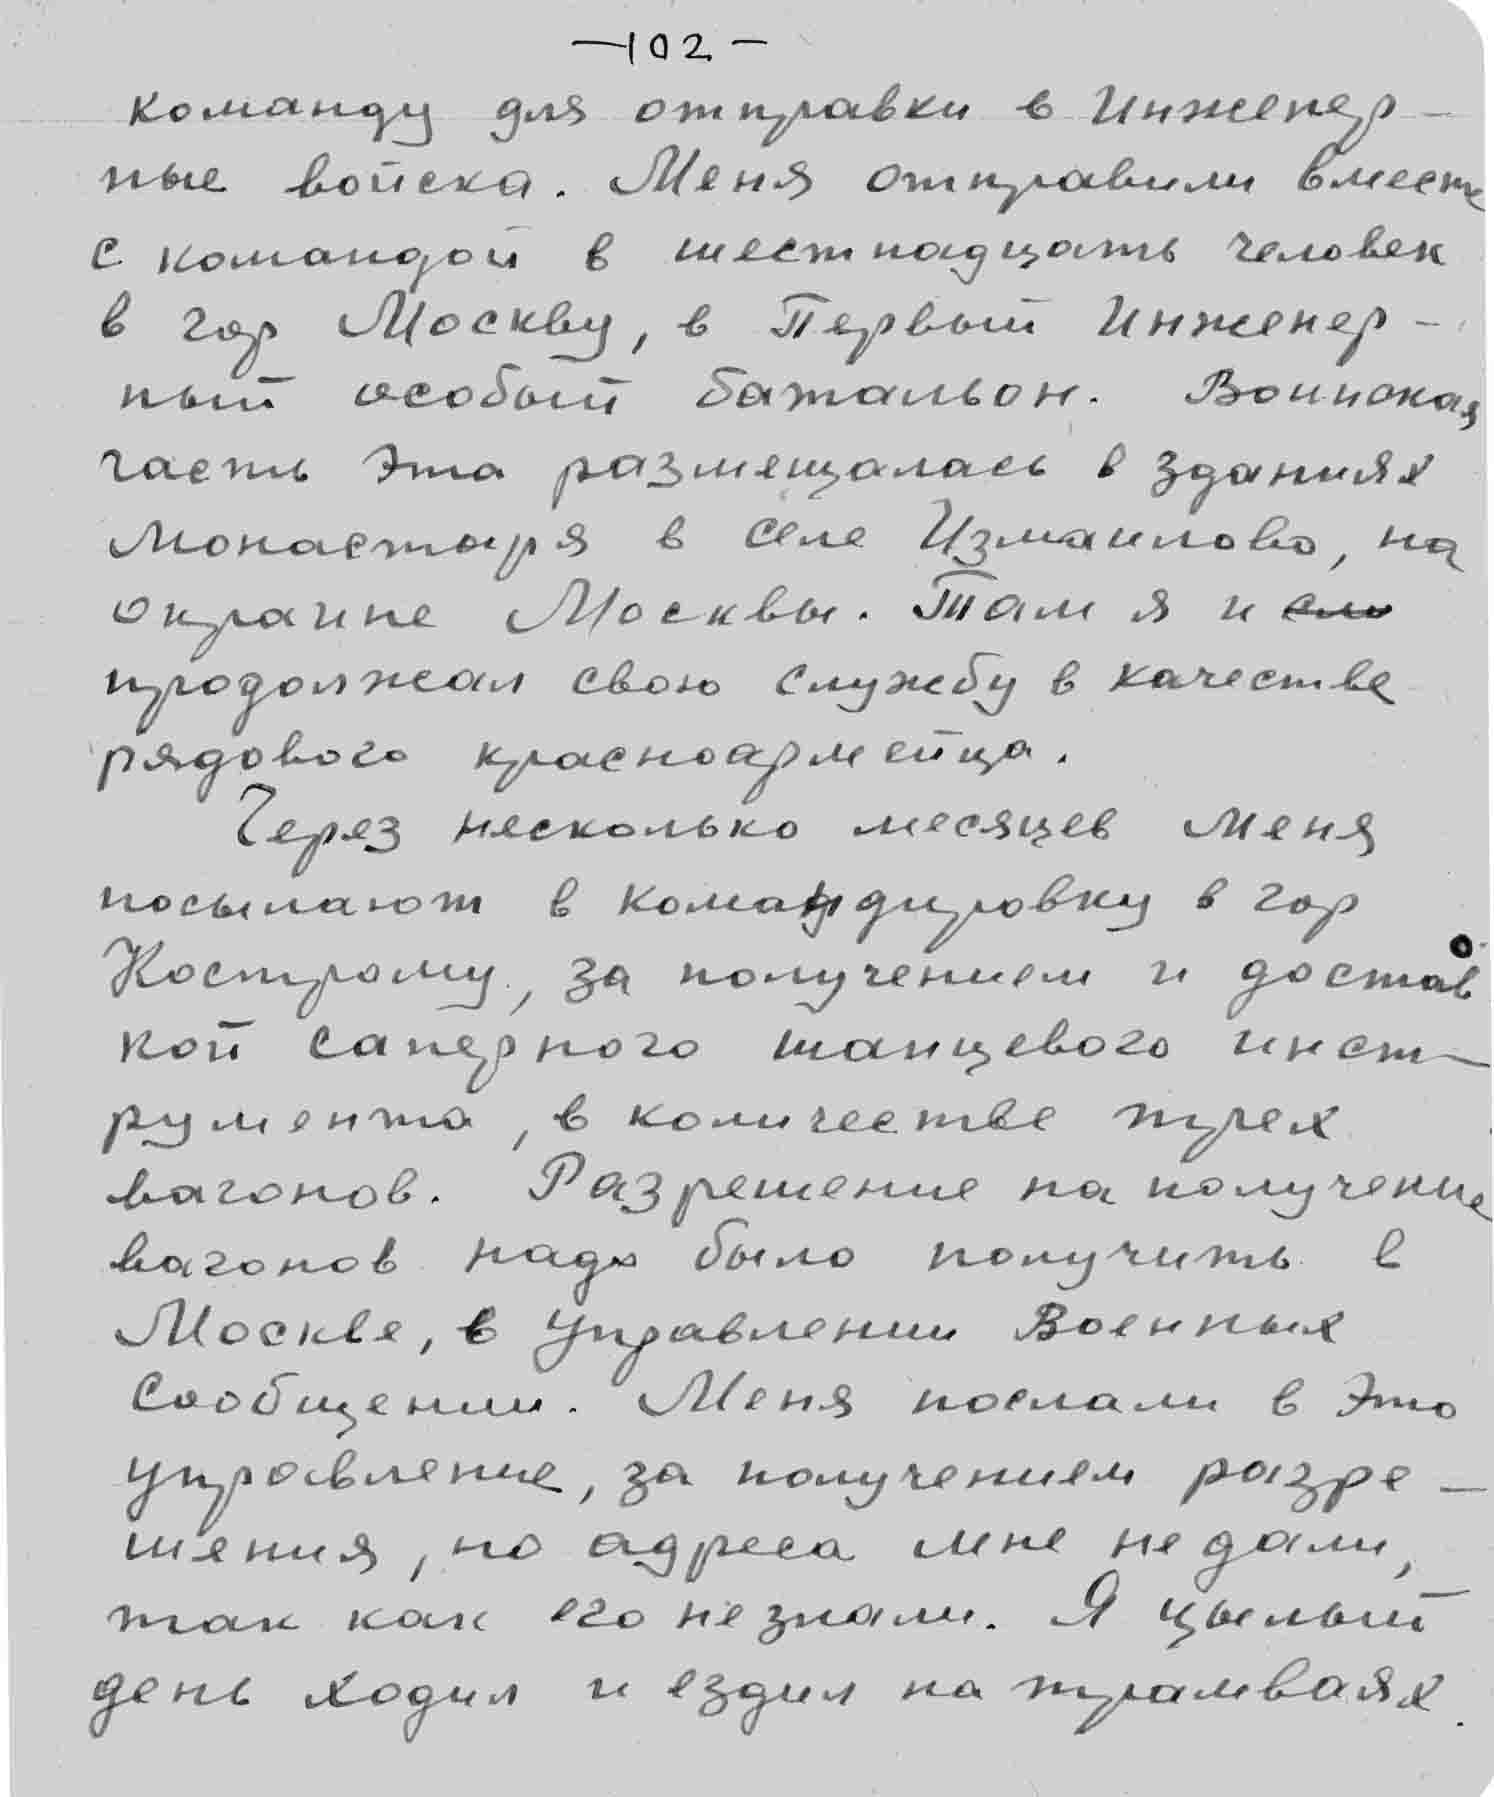 —102—
команду для отправки в Инженер—
ные войска. Меня отправили вместе
с командой в шестнадцать человек
в гор Москву, в Первый Инженер—
ный особый батальон. Воинская
часть эта размещалась в зданиях
монастыря в селе Измаилово, на
окраине Москвы. Там я и
продолжал свою службу в качестве
рядового красноармейца.
Через несколько месяцев меня
посылают в командировку в гор
Кострому, за получением и достав
кой саперного шанцевого инст—
румента, в количестве трех
вагонов. Разрешение на получение
вагонов надо было получить в
Москве, в Управлении Военных
Сообщении. Меня послали в это
управление, за получением разре—
шения, но адреса мне не дали,
так как его не знали. Я цылый
день ходил и ездил на трамваях.